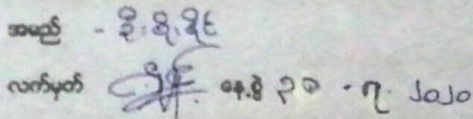 အမည် - စိုး စိုး ခိုင်
လက်မှတ် နေ့စွဲ ၃၁ - ၇ - ၂၀၂၀